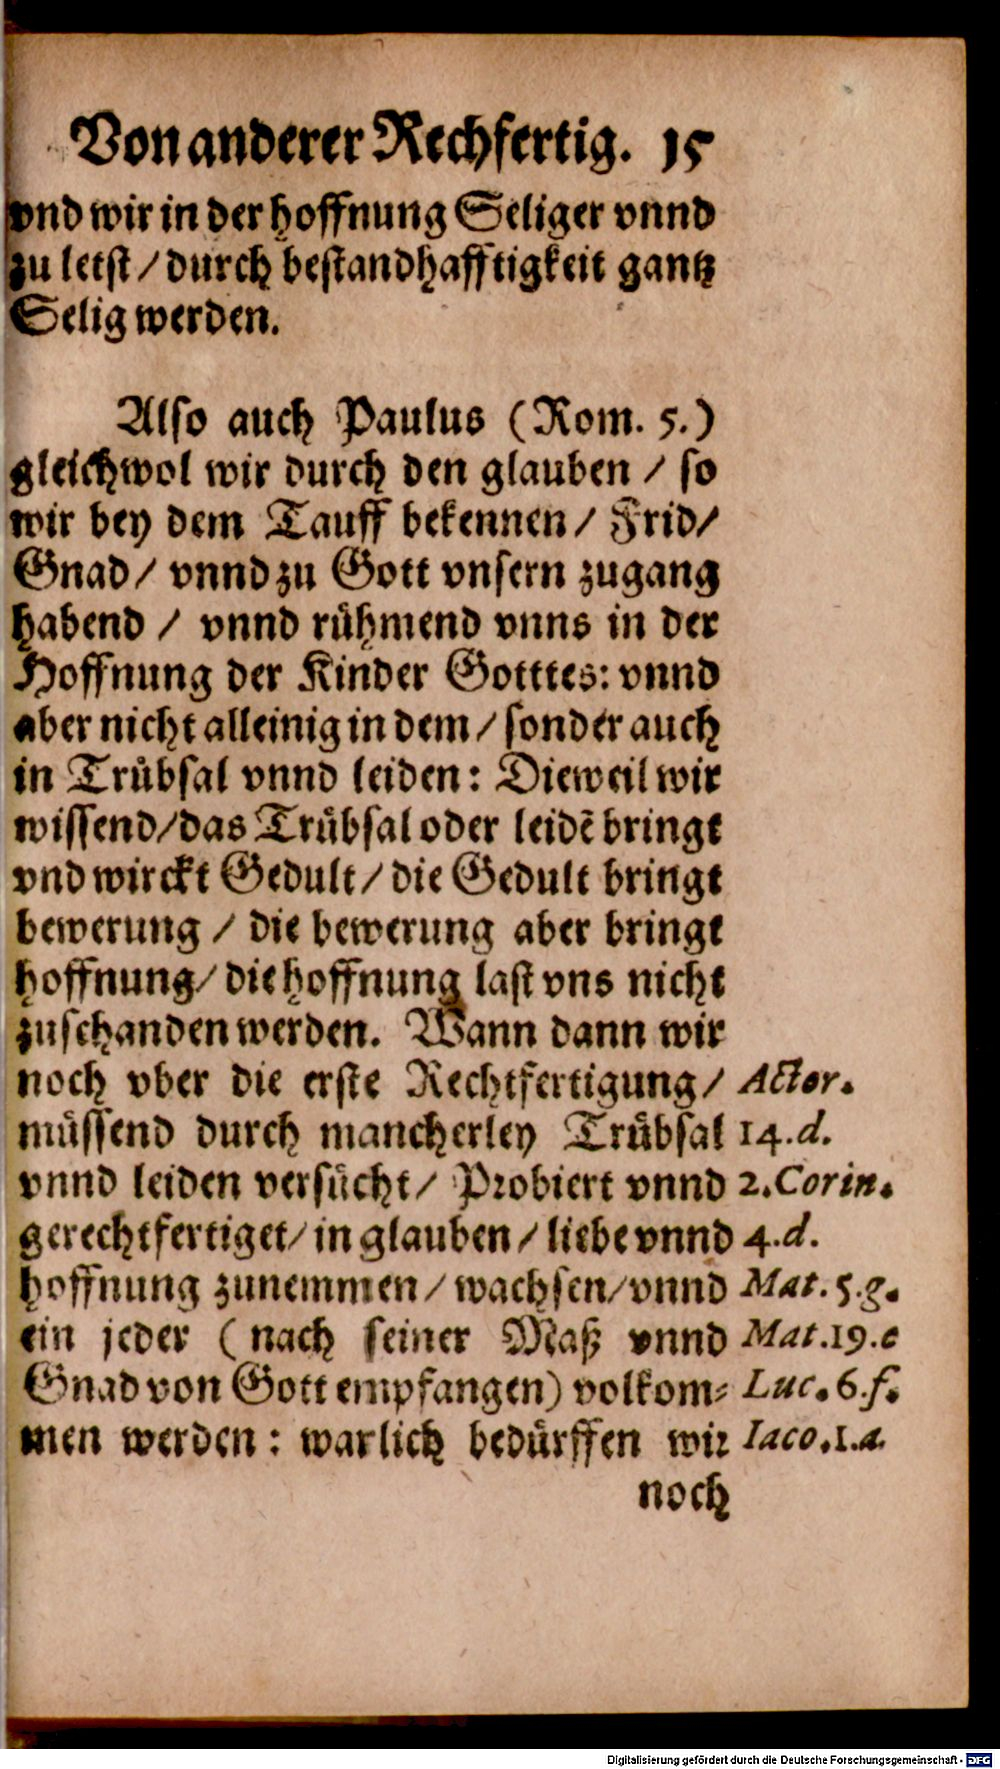 Von anderer Rechfertig. 15
vnd wir in der hoffnung Seliger vnnd
zu letst / durch bestandhafftigkeit gantz
Selig werden.
Also auch Paulus (Rom. 5.)
gleichwol wir durch den glauben / so
wir bey dem Tauff bekennen / Frid /
Gnad / vnnd zu Gott vnsern zugang
habend / vnnd rühmend vnns in der
Hoffnung der Kinder Gotttes: vnnd
aber nicht alleinig in dem / sonder auch
in Trübsal vnnd leiden: Dieweil wir
wissend / das Trübsal oder leidẽ bringt
vnd wirckt Gedult / die Gedult bringt
bewerung / die bewerung aber bringt
hoffnung / die hoffnung last vns nicht
zuschanden werden. Wann dann wir
noch vber die erste Rechtfertigung / Actor.
müssend durch mancherley Trübsal 14.d.
vnnd leiden versücht / Probiert vnnd 2.Corin.
gerechtfertiget / in glauben / liebe vnnd 4.d.
hoffnung zunemmen / wachsen / vnnd Mat. 5.g.
ein jeder (nach seiner Maß vnnd Mat.19.c
Gnad von Gott empfangen) volkom= Luc. 6.f.
men werden: warlich bedürffen wir Iaco.1.a.
noch
Digitalisierung gefördert durch die Deutsche Forschungsgemeinschaft - DFG